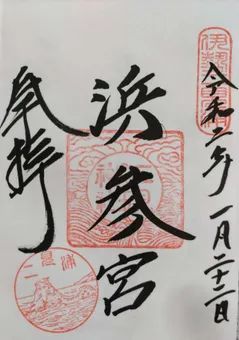 伊勢
令和二年一月二十二日
浜参宮
奉拝
二見浦